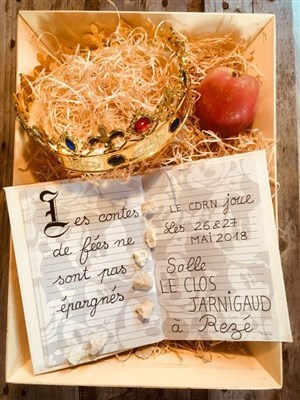 Les contes
de fées ne
sont pas
épargnés
LE CDRN joue
Les 26 & 27
MAI 2018
Salle
LE CLOS
JARNIGAUD
à Rezé